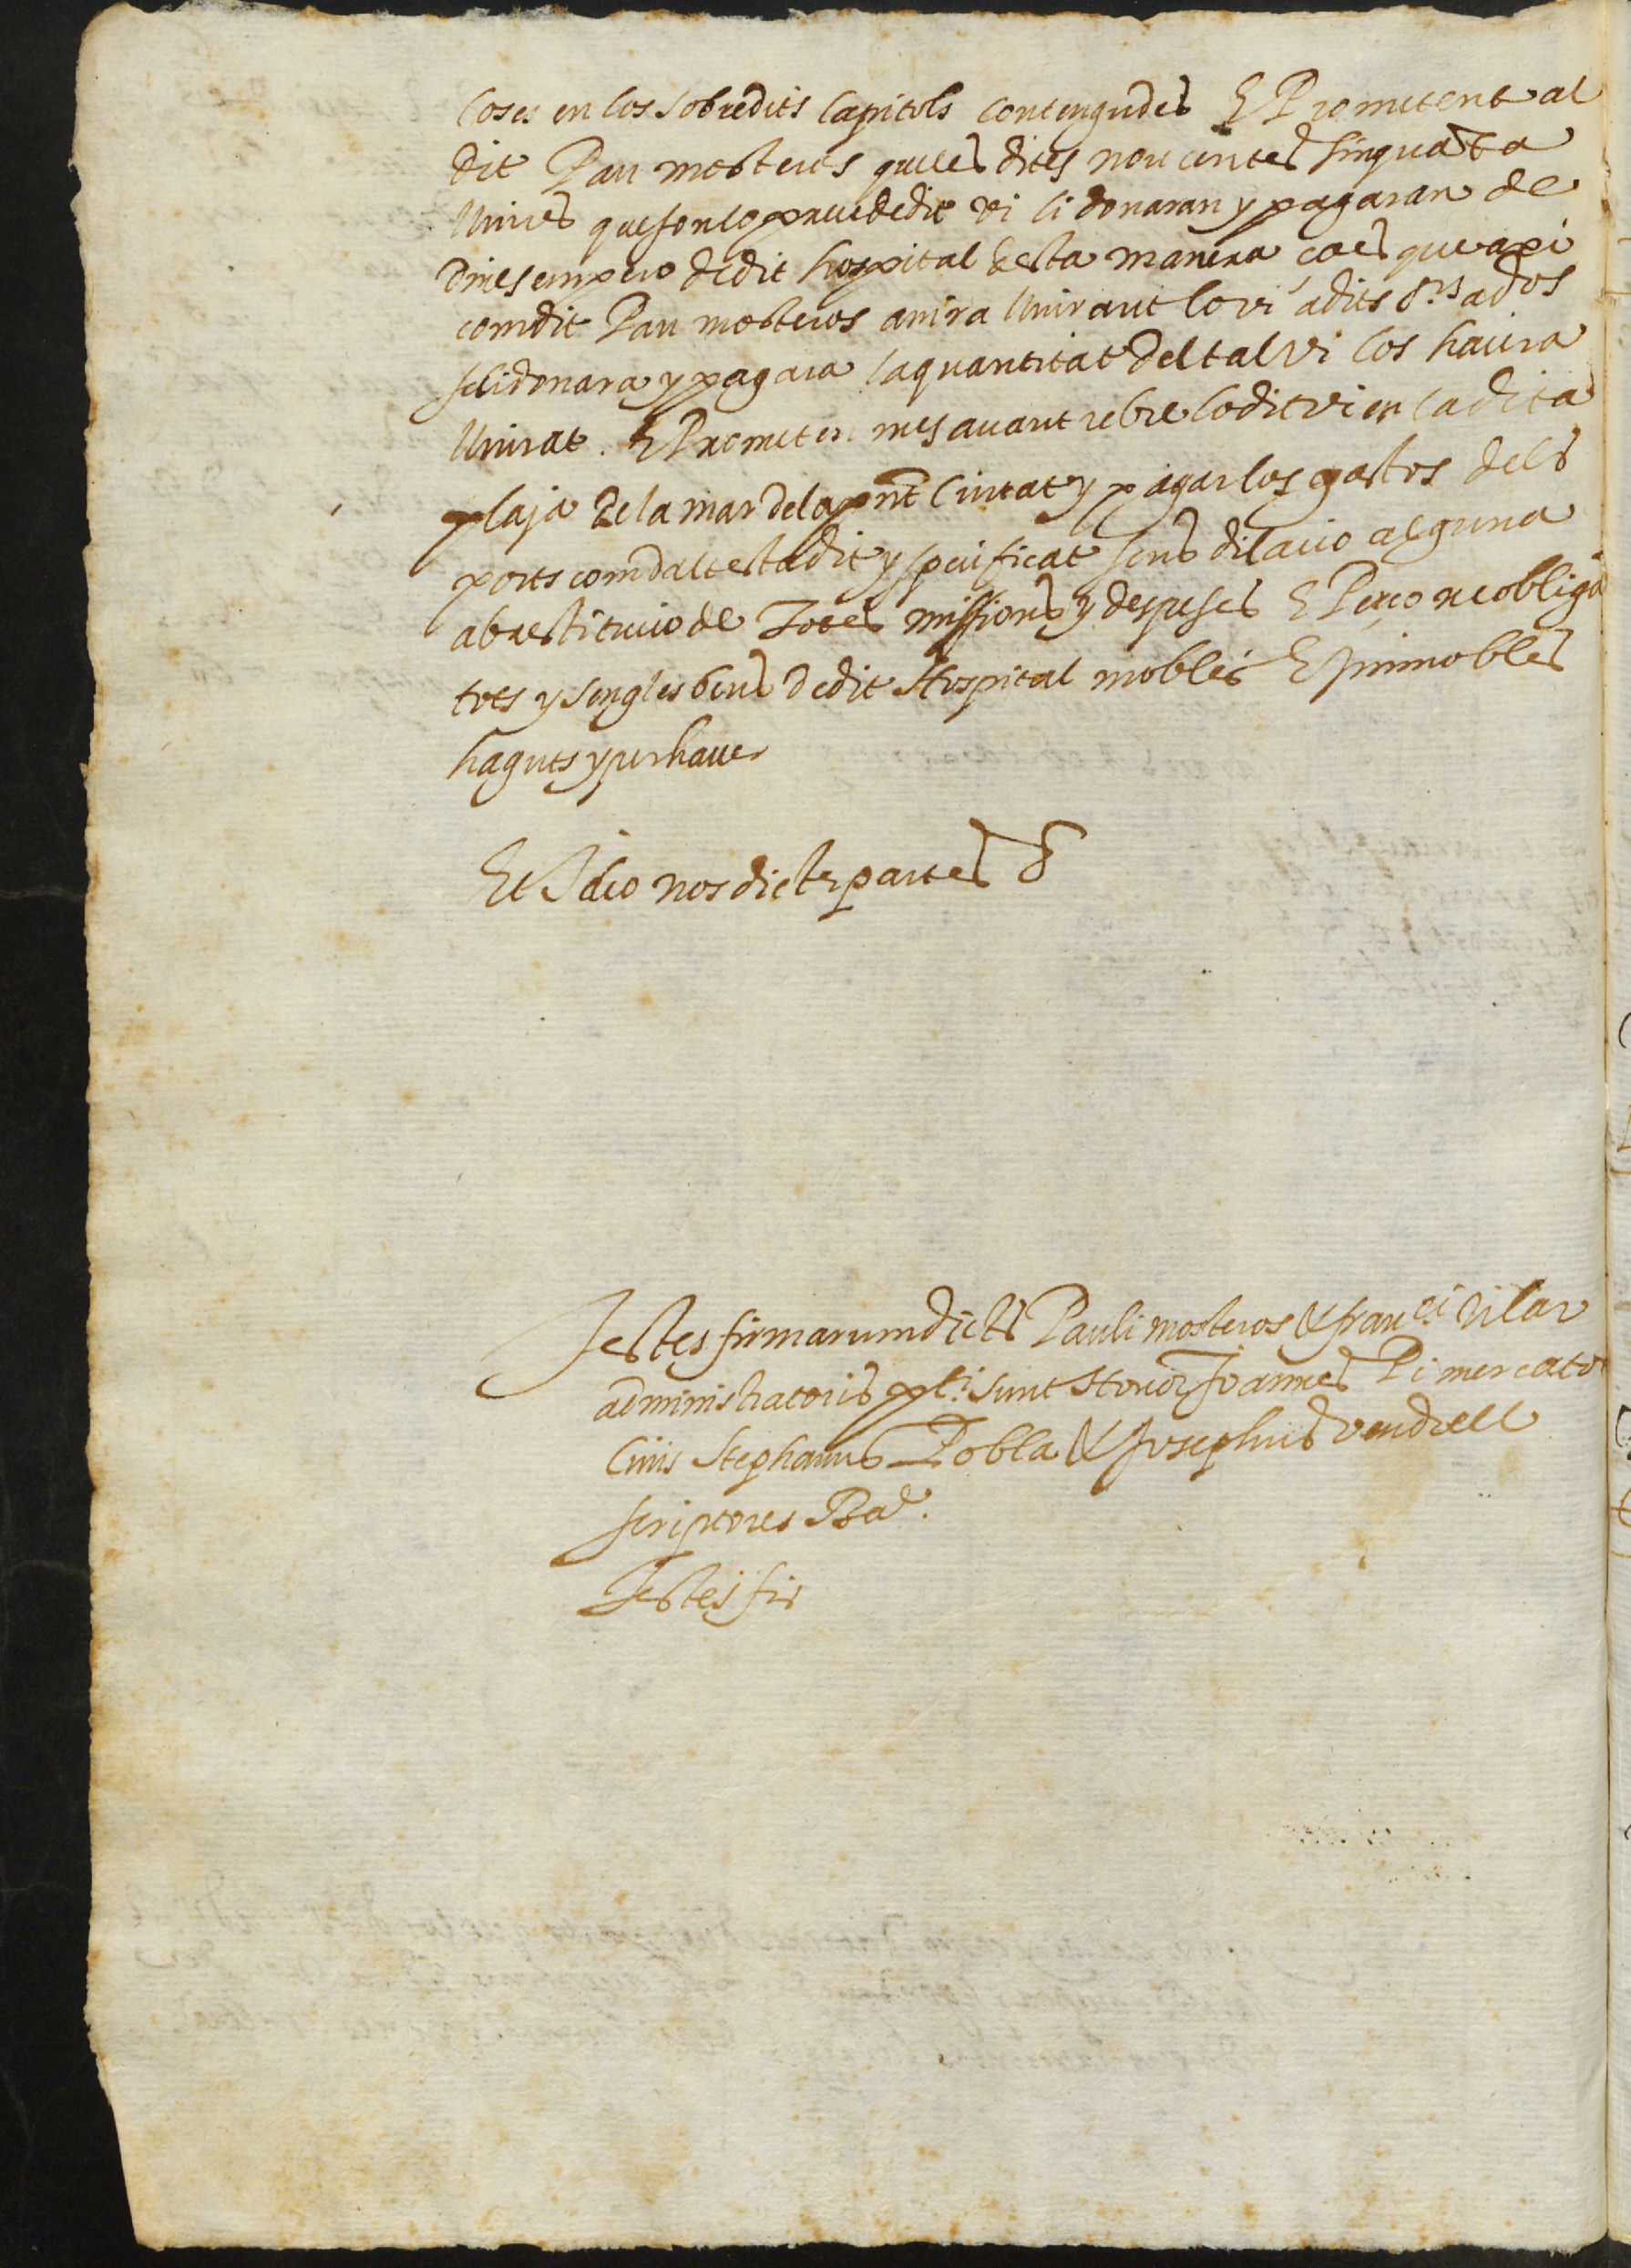 coses en los sobredits Capitols contengudes E Prometent al
dit Pau mosteros que les dites noucentes sinquata
lliures que son lo preu de dit vi li donaran y pagaran de
diners empero de dit hospital desta manera ço es que axi
com dit Pau mosteros anira lliurant lo vi a dits s.rs ados
se li donara y pagara la quantitat del tal vi los haura
lliurat. E Prometen mes avant rebre lo dit vi en la dita
plaja de la mar de la pnt Ciutat y pagar los gastos dels
ports com dalt esta dit y specificat sens dilacio alguna
ab restitucio de Totes missions y despeses E Perço ne obliga
tots y sengles bens de dit Hospital mobles E Immobles
haguts y per haver
Et Ideo nos dicte partes &
Testes firmarum dicti Pauli mosteros & fran.ci vilar
administratoris pti. sunt Honor Joannes Pi mercator
Civis Stephanus Pobla & Josephus vendrell
scriptores Bar.
Testes fir